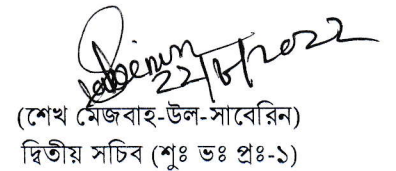 22/৮/2022
(শেখ মেজবাহ-উল-সাবেরিন)
দ্বিতীয় সচিব (শুঃ ভঃ প্রঃ-১)